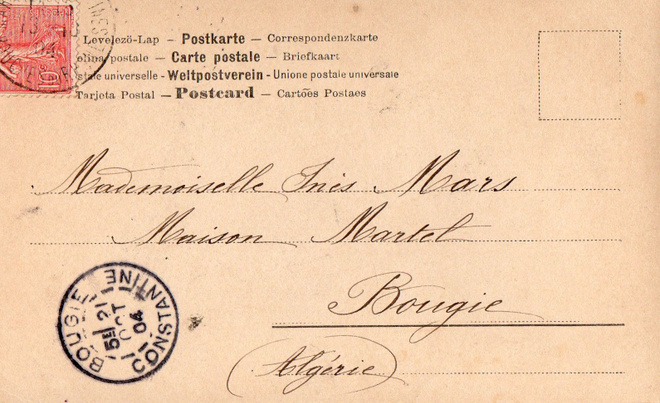 Levelezö-Lap – Postkarte – Correspondenzkarte
postale – Carte postale – Briefkaart
universelle - Weltpostverein - Unione postale universale
Tarjeta Postal – Postcard – Cartões Postaes
10
Mademoiselle Inès Mars
Maison Martel
Bougie
(Algérie)
BOUGIE CONSTANTINE
5E 21
OCT
04